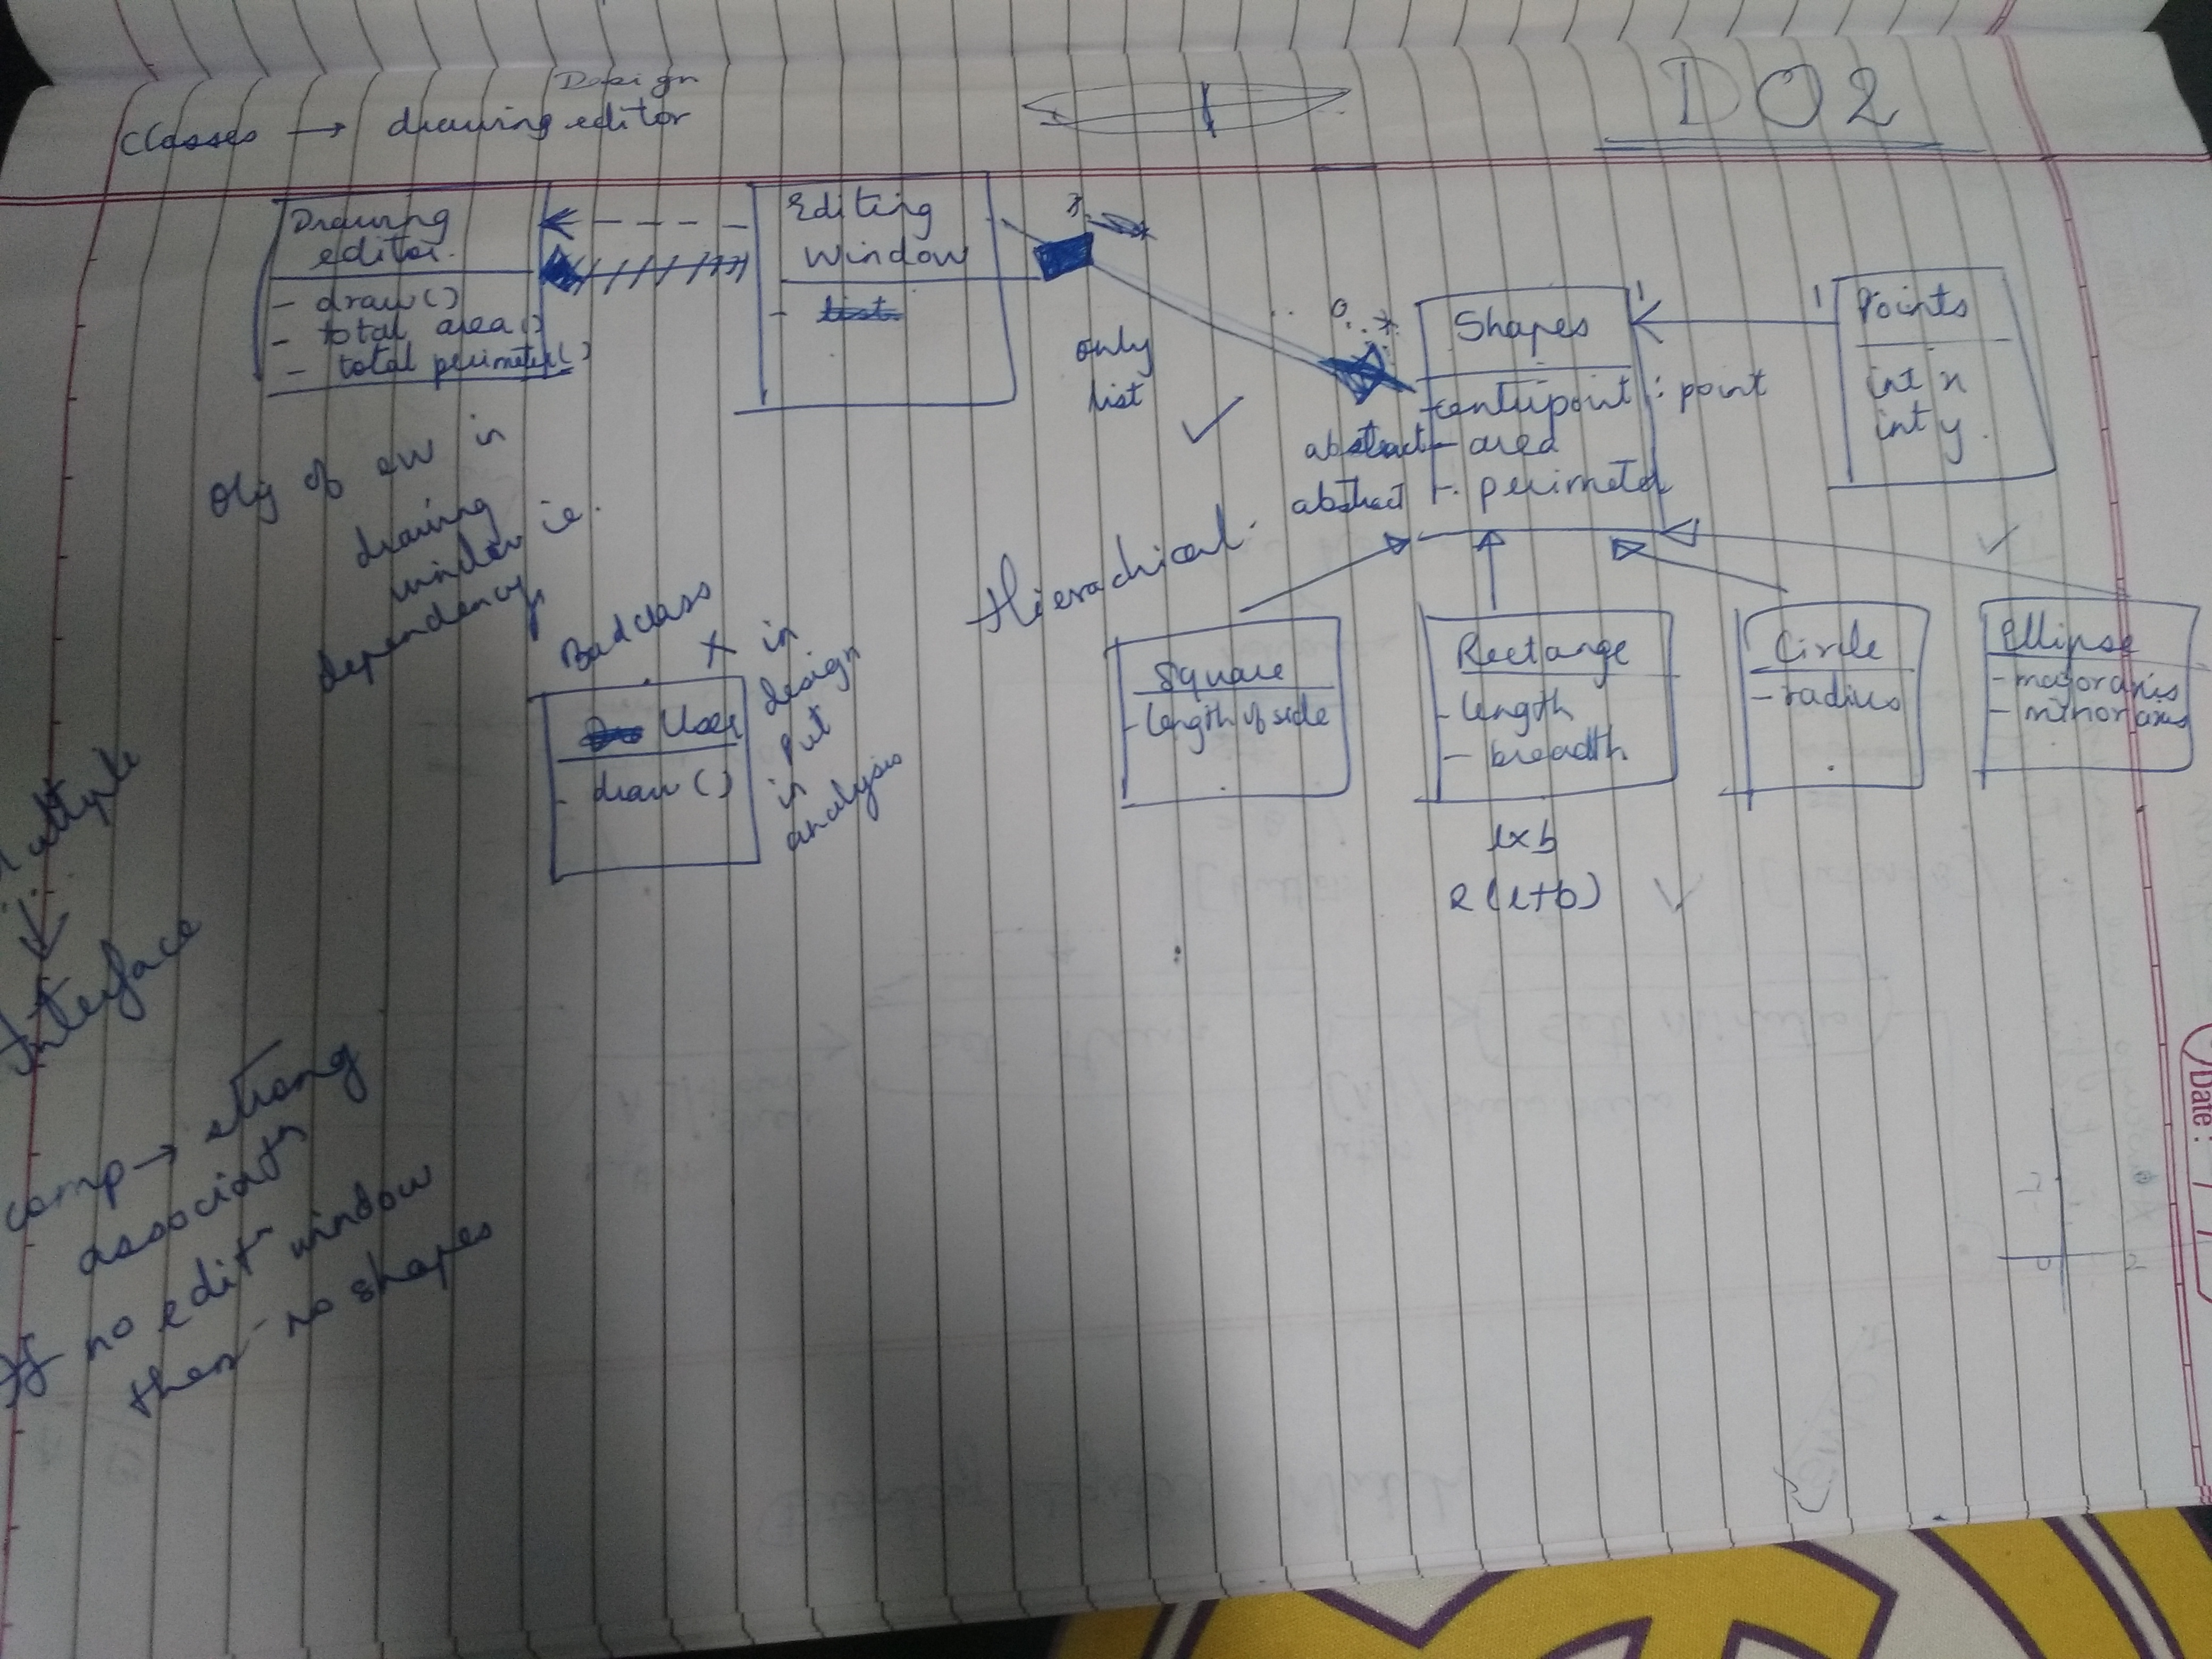 Design
Classes → drawing editor
DO2
Drawing
editor.
- draw()
- total area()
- total perimeter()
Editing
Window
*
only
list
0..*
Shapes
- centrepoint : point
abstract - area
abstract - perimeter
1
1
Points
int x
int y
Obj of ew in
drawing
window ie.
dependency
Hierachical
Bad class
X in
design
put
in
analysis
User
- draw()
Square
- length of side
Rectange
- length
- breadth
l×b
2(l+b)
Circle
- radius
Ellipse
- major axis
- minor axis
↓
Interface
comp → strong
associatn
If no editn window
then no shapes
Date: